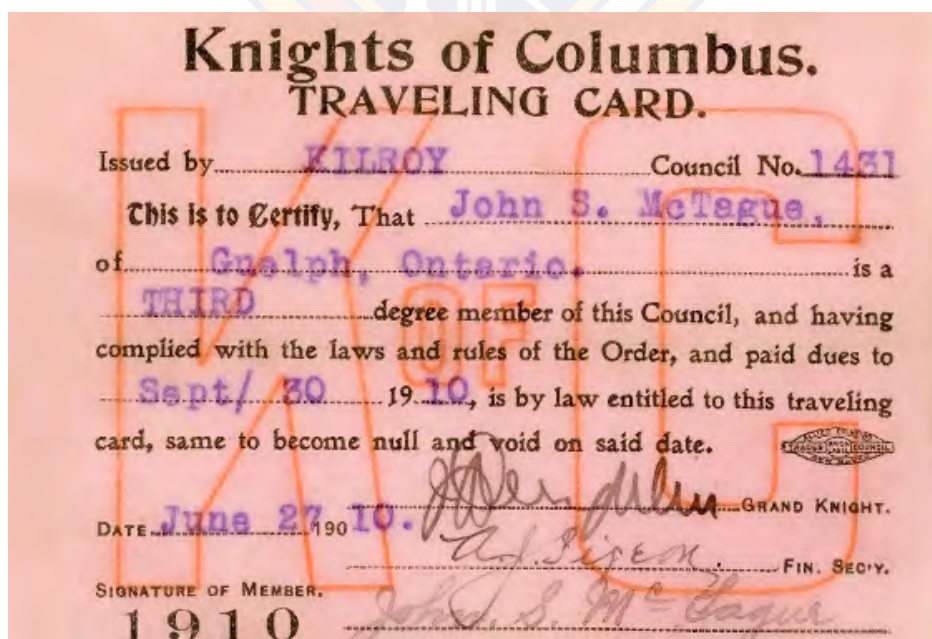 Knights of Columbus.
TRAVELING CARD.
Issued by KILROY Council No. 1431
This is to Certify, That John S. McTague,
of Guelph, Ontario. is a
THIRD degree member of this Council, and having
complied with the laws and rules of the Order, and paid dues to
Sept/ 30 19 10, is by law entitled to this traveling
card, same to become null and void on said date.
ALLIED PRINTING
TRADES UNION LABEL COUNCIL
NEW HAVEN
K OF C
GRAND KNIGHT.
DATE June 27 190 10.
A. J. Pigeon FIN. SEC'Y.
SIGNATURE OF MEMBER.
John. S. McTague
1910